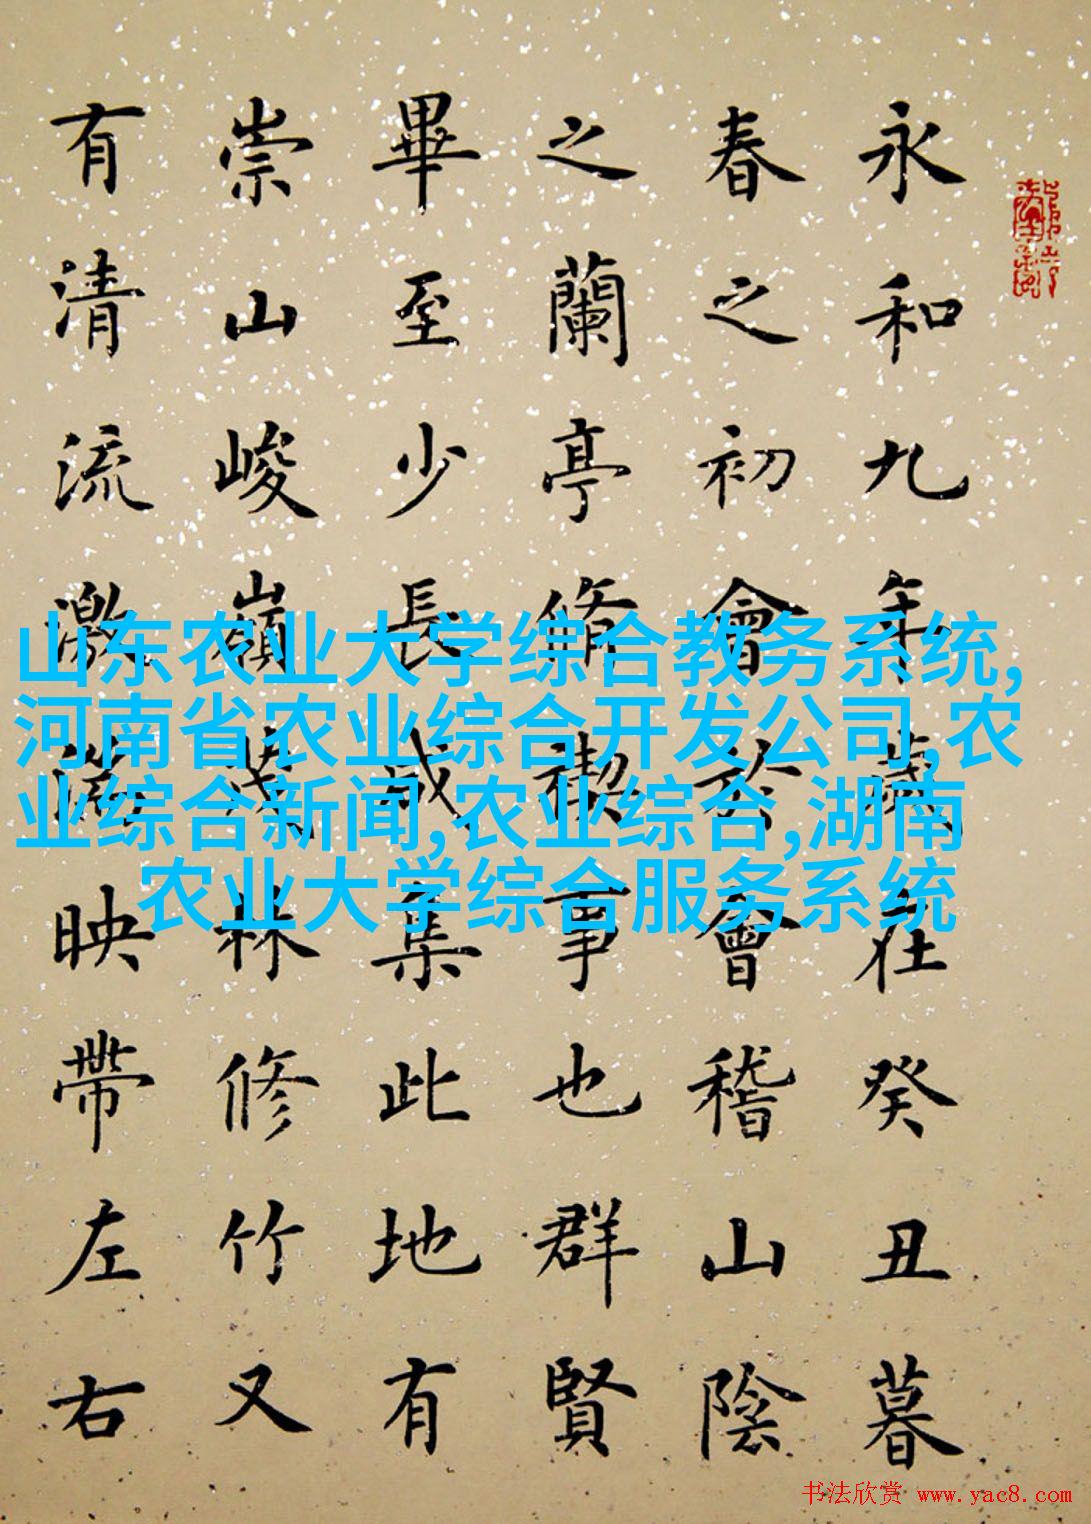 永和九年歲在癸丑暮
春之初會於會稽山陰
之蘭亭脩禊事也群賢
畢至少長咸集此地有
崇山峻嶺茂林修竹又
有清流激湍映帶左右
山东农业大学综合教务系统,
河南省农业综合开发公司,农
业综合新闻,农业综合,湖南
农业大学综合服务系统
书法欣赏 www.yac8.com